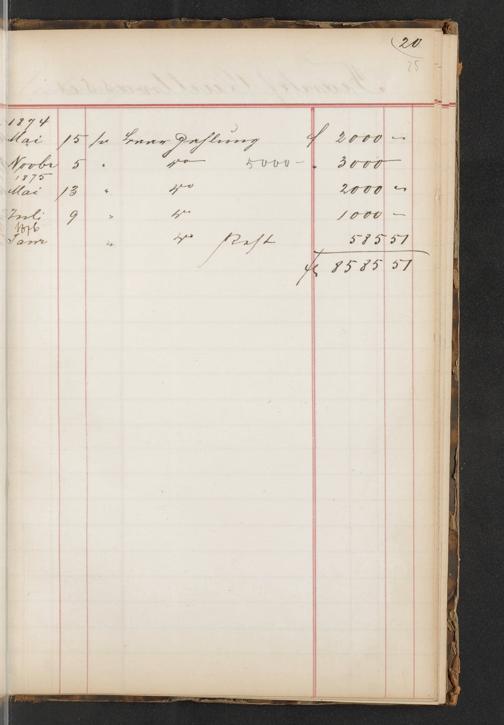 20
25
1874
Mai 15 pr Baar Zahlung f 2000 -
Novbr 5 " do 5000 - " 3000
1875
Mai 13 " do 2000 -
Juli 9 " do 1000 -
1876
Janr " do Rest 585 51
f 8585 51